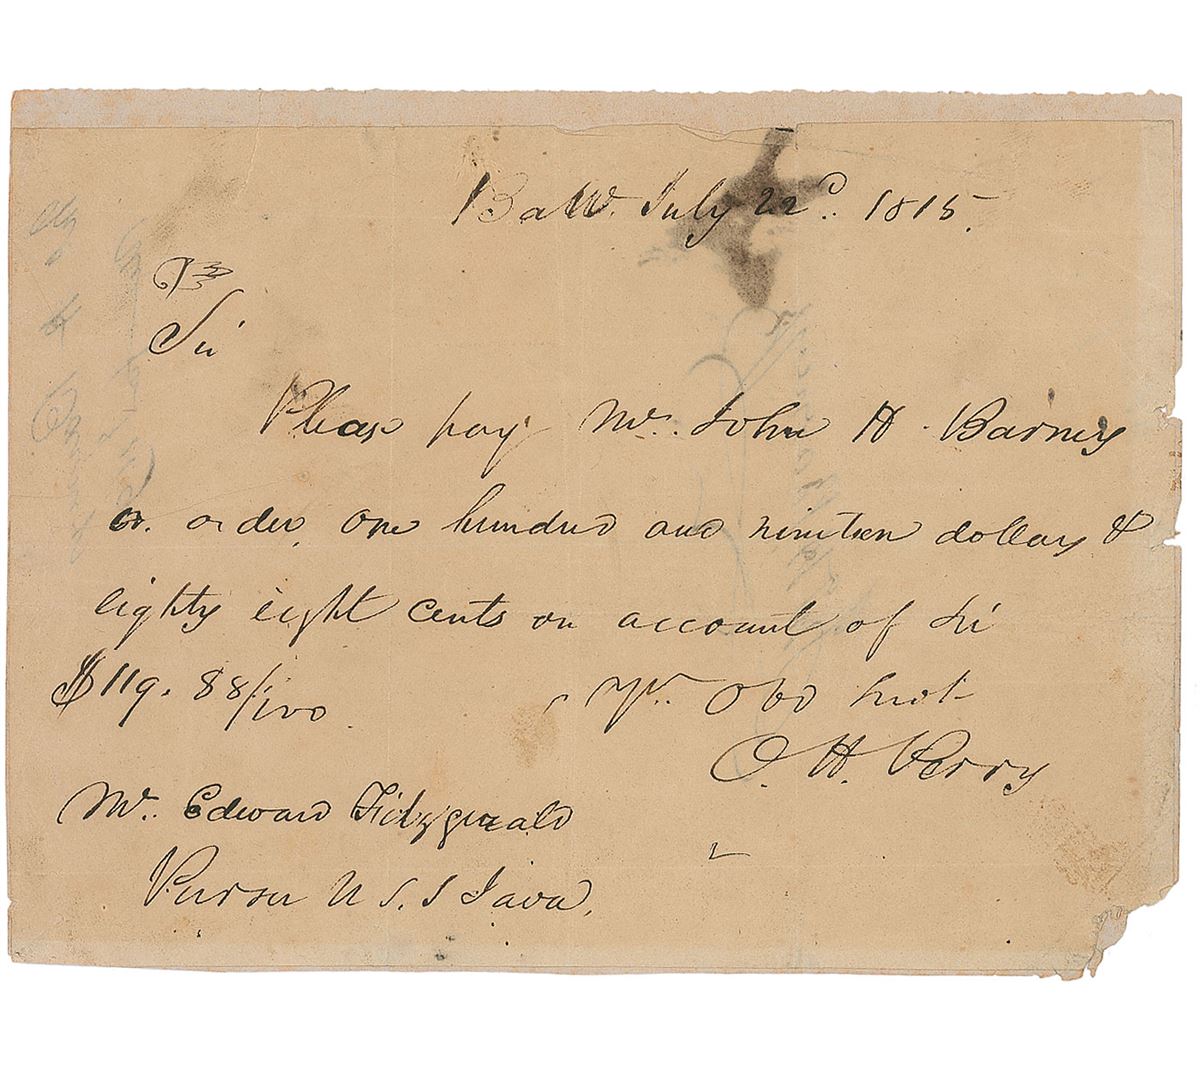 Balt. July 22d. 1815.
Sir
Please pay Mr. John H. Barney
or order, one hundred and nineteen dollars &
eighty eight cents on account of Sir
$119. 88/100
Yr. Obd Servt
O. H. Perry
Mr. Edward Fitzgerald
Purser U S. S Java.